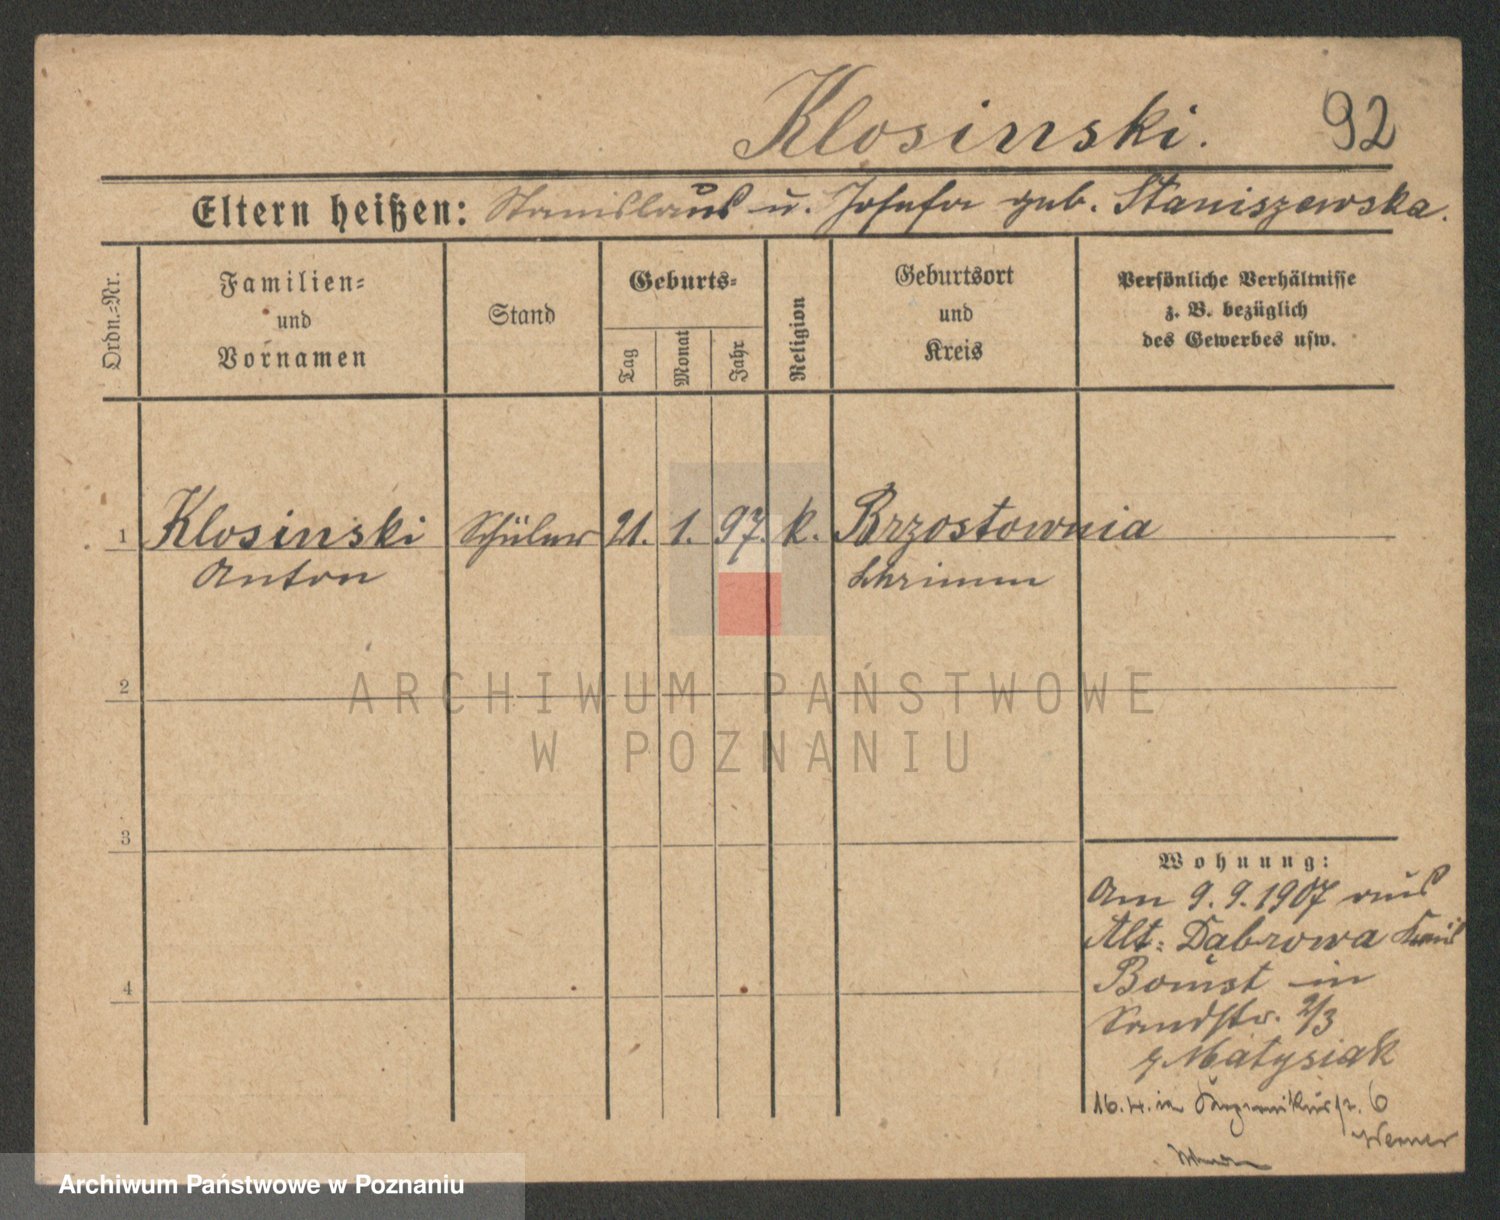 Klosinski. 92
Eltern heißen: Stanislaus u. Josefa geb. Staniszewska.
Ordn.-Nr.
Familien-
und
Vornamen
Stand
Geburts-
Tag
Monat
Jahr
Religion
Geburtsort
und
Kreis
Persönliche Verhältnisse
z. B. bezüglich
des Gewerbes usw.
1 Klosinski Schüler 21. 1. 97. k. Brzostownia
Anton Schrimm
2
3
4
Wohnung:
Am 9. 9. 1907 aus
Alt-Dąbrowa Kreis
Bomst in
Sandstr. 2/3
Matysiak
16. 4. in 6
Werner
ARCHIWUM PAŃSTWOWE
W POZNANIU
Archiwum Państwowe w Poznaniu